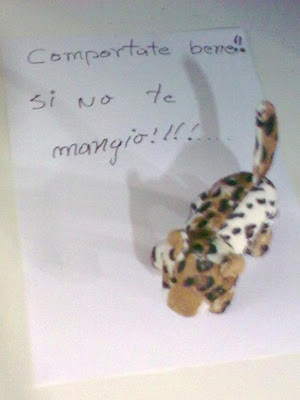 Comportate bene!!
si no te
mangio!!!!....